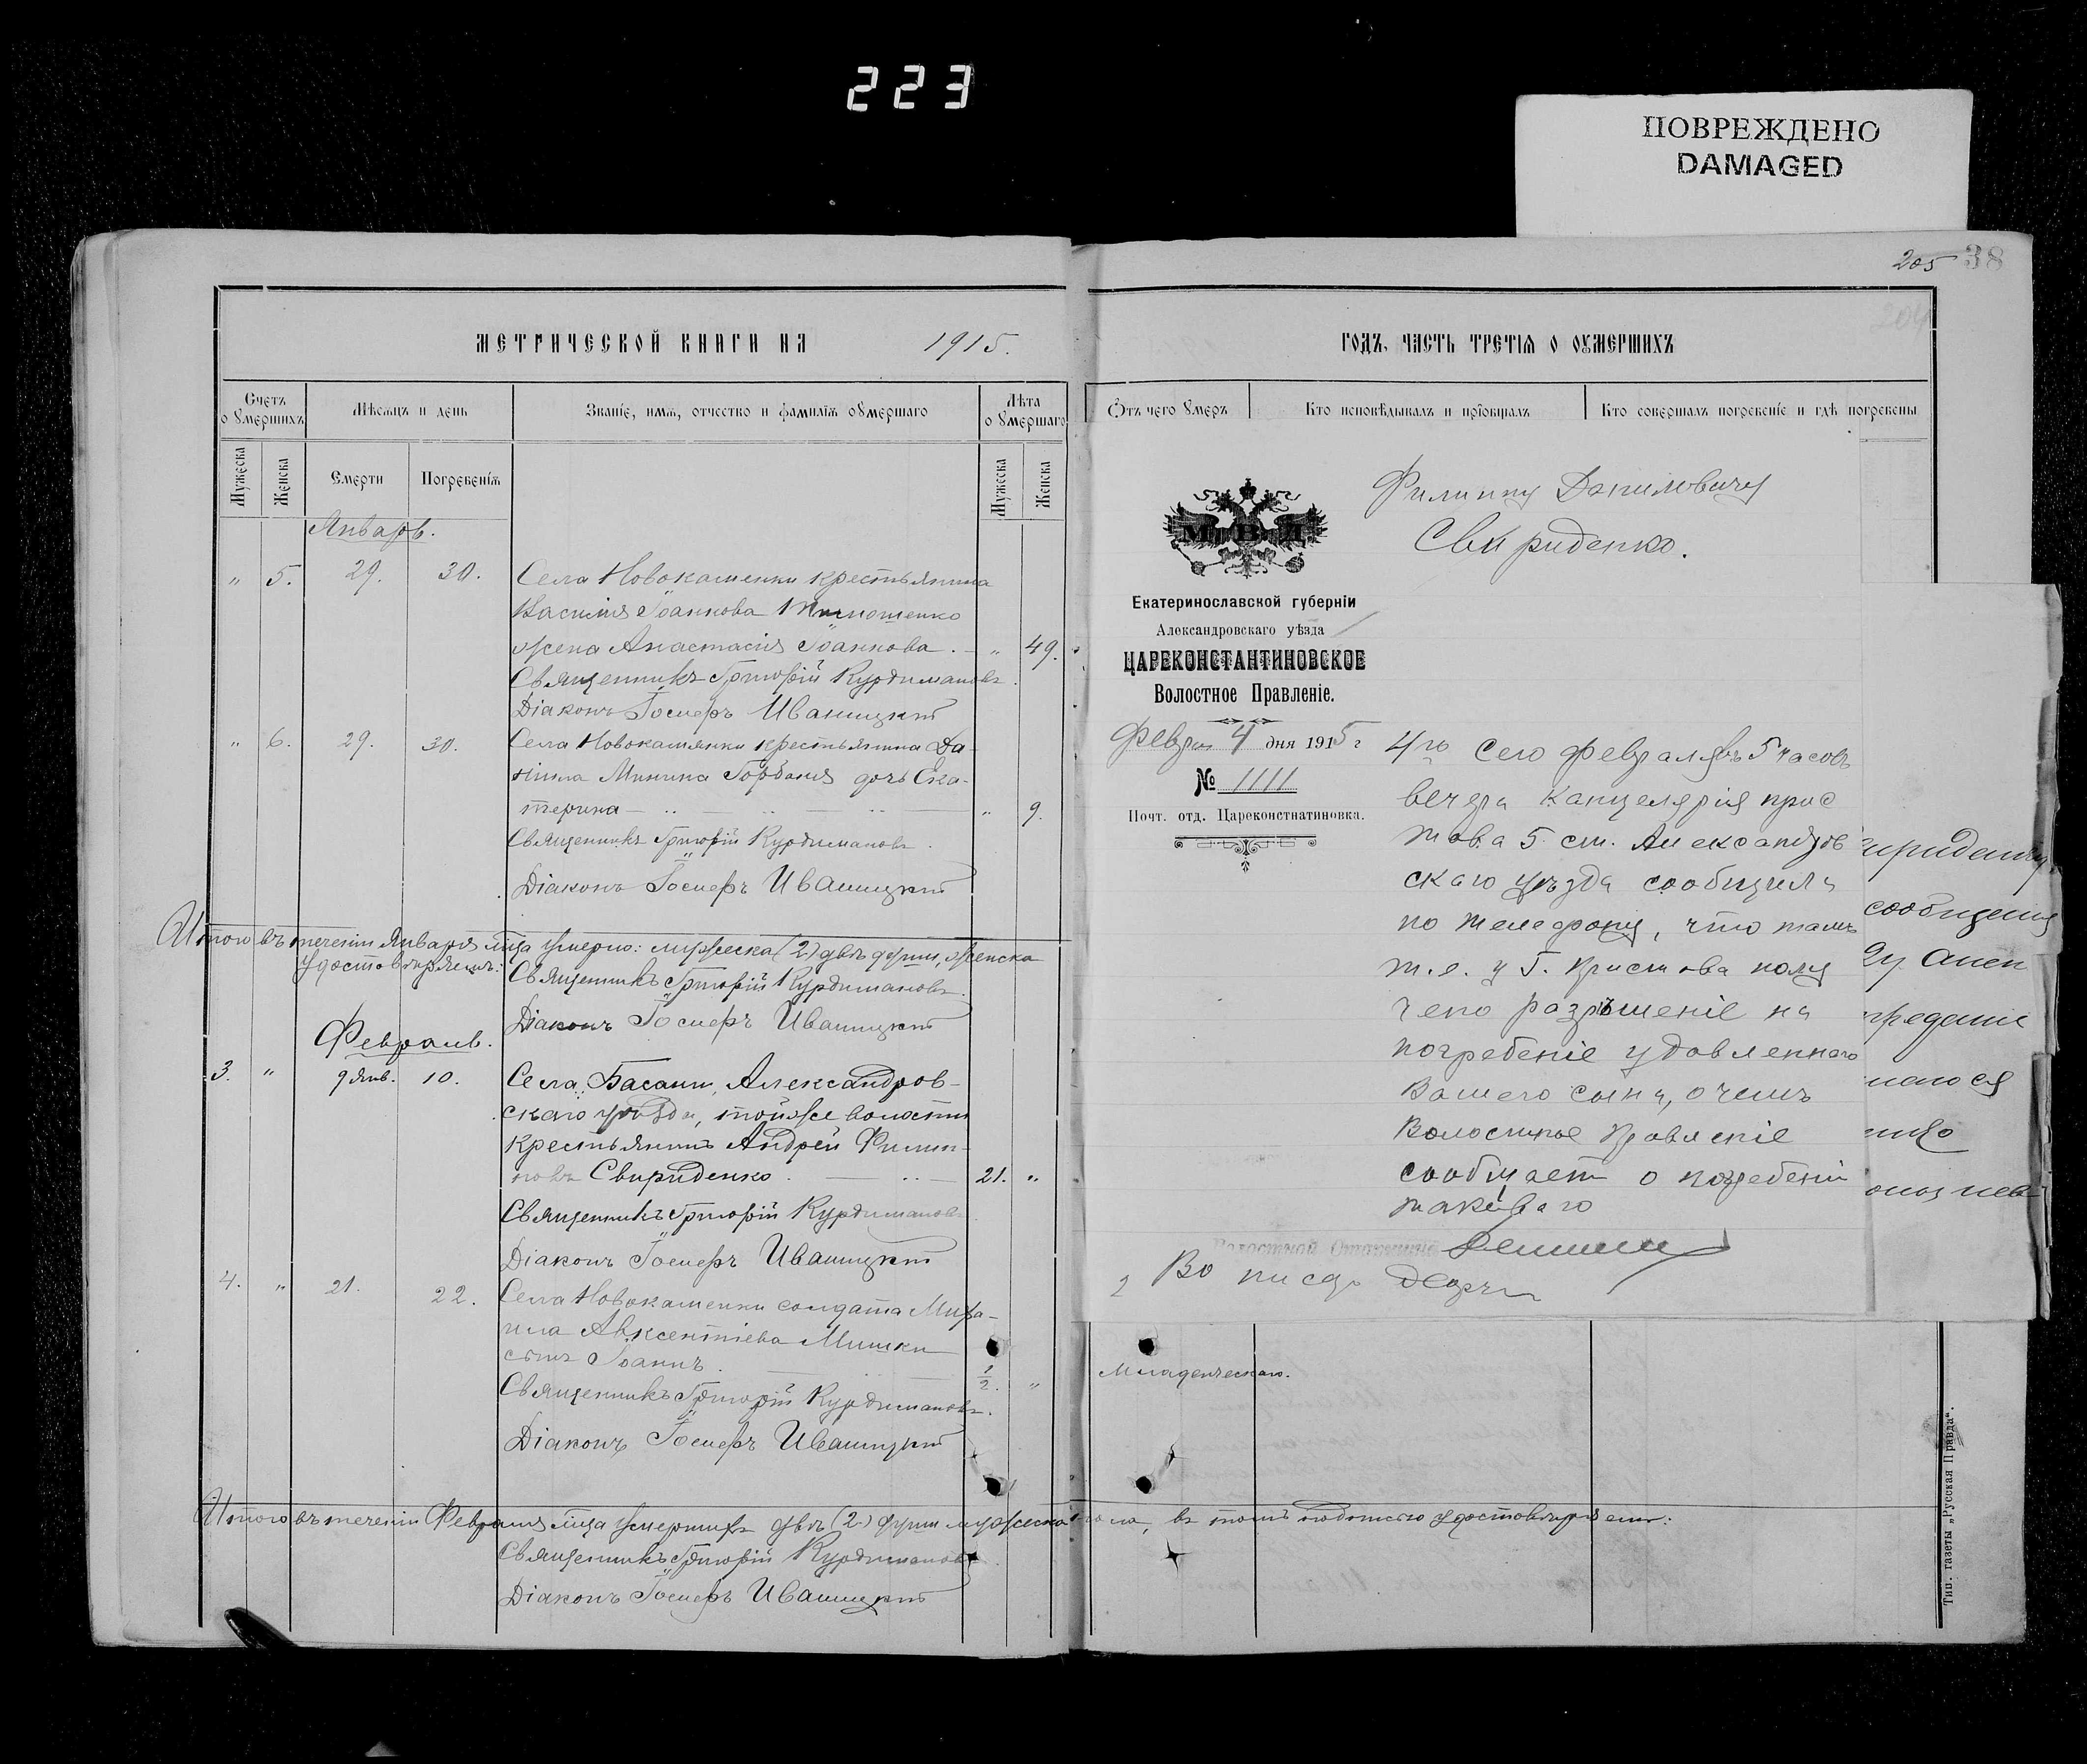 223
ПОВРЕЖДЕНО
DAMAGED
205 38
204
МЕТРИЧЕСКОЙ КНИГИ НА 1915.
Счетъ о умершихъ
Мѣсяцъ и день
Званіе, имя, отчество и фамилія умершаго
Лѣта умершаго
Мужеска
Женска
Смерти
Погребенія
Мужеска
Женска
Январь.
" 5. 29. 30. Села Новокаменки крестьянина
Василія Іоаннова Тимошенко
жена Анастасія Іоаннова. " 49.
Священникъ Григорій Курдимановъ.
Діаконъ Іосифъ Иваницкій
" 6. 29. 30. Села Новокаменки крестьянина Да-
ніила Минина Горбаня дочь Ека-
терина " 9.
Священникъ Григорій Курдимановъ.
Діаконъ Іосифъ Иваницкій
Итого въ теченіи Января м-ца умерло: мужеска (2) двѣ души, женска
удостовѣряемъ: Священникъ Григорій Курдимановъ.
Діаконъ Іосифъ Иваницкій
Февраль.
3. " 9 Янв. 10. Села Басани, Александров-
скаго уѣзда, той же волости
крестьянинъ Андрей Филип-
повъ Свириденко. 21. "
Священникъ Григорій Курдимановъ
Діаконъ Іосифъ Иваницкій
4. " 21. 22. Села Новокаменки солдата Миха-
ила Авксентіева Мишки
сынъ Іоаннъ. 1/2. "
Священникъ Григорій Курдимановъ.
Діаконъ Іосифъ Иваницкій
Итого въ теченіи Февраля м-ца умершихъ двѣ (2) души мужеска пола, въ томъ подписью удостовѣряемъ:
Священникъ Григорій Курдимановъ
Діаконъ Іосифъ Иваницкій
ГОДЪ, ЧАСТЬ ТРЕТІЯ О УМЕРШИХЪ
Отъ чего умеръ
Кто исповѣдывалъ и пріобщалъ
Кто совершалъ погребеніе и гдѣ погребены
М В Д
Екатеринославской губерніи
Александровскаго уѣзда
ЦАРЕКОНСТАНТИНОВСКОЕ
Волостное Правленіе.
Февраля 4 дня 1915 г
№ 1111
Почт. отд. Цареконстнатиновка.
Филиппу Даниловичу
Свириденко.
4го сего февраля въ 5 часовъ
вечера канцелярія прис
тава 5 ст. Александров
скаго уѣзда сообщила
по телефону, что тамъ
т.е. у Г. Пристава полу
чено разрѣшеніе на
погребеніе удавленнаго
Вашего сына, о чемъ
Волостное Правленіе
сообщает о погребеніи
таковаго
Волостной Старшина
сообщения
предание
Младенческаго.
Тип. газеты „Русская Правда".